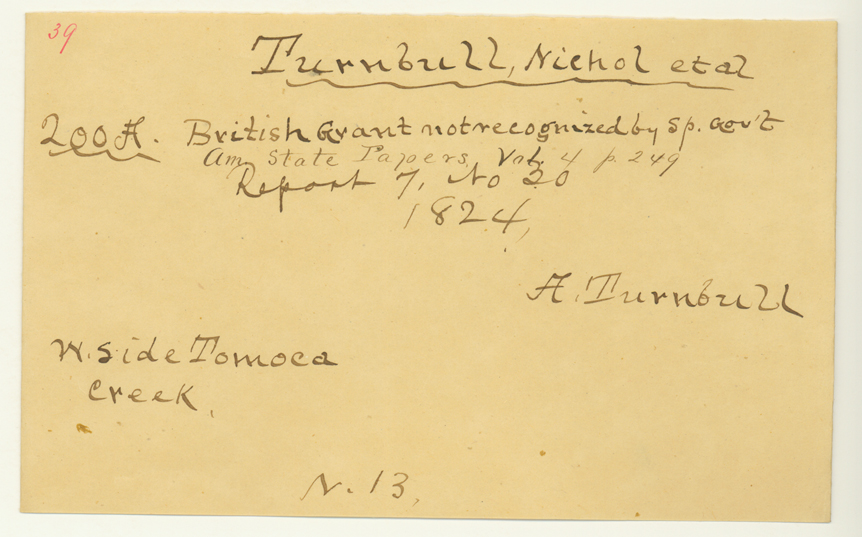 39
Turnbull, Nichol et al
200 A. British Grant not recognized by Sp. Gov't
Am State Papers, Vol. 4 p. 249
Report 7, No 20
1824,
A. Turnbull
W. Side Tomoca
Creek,
N. 13,